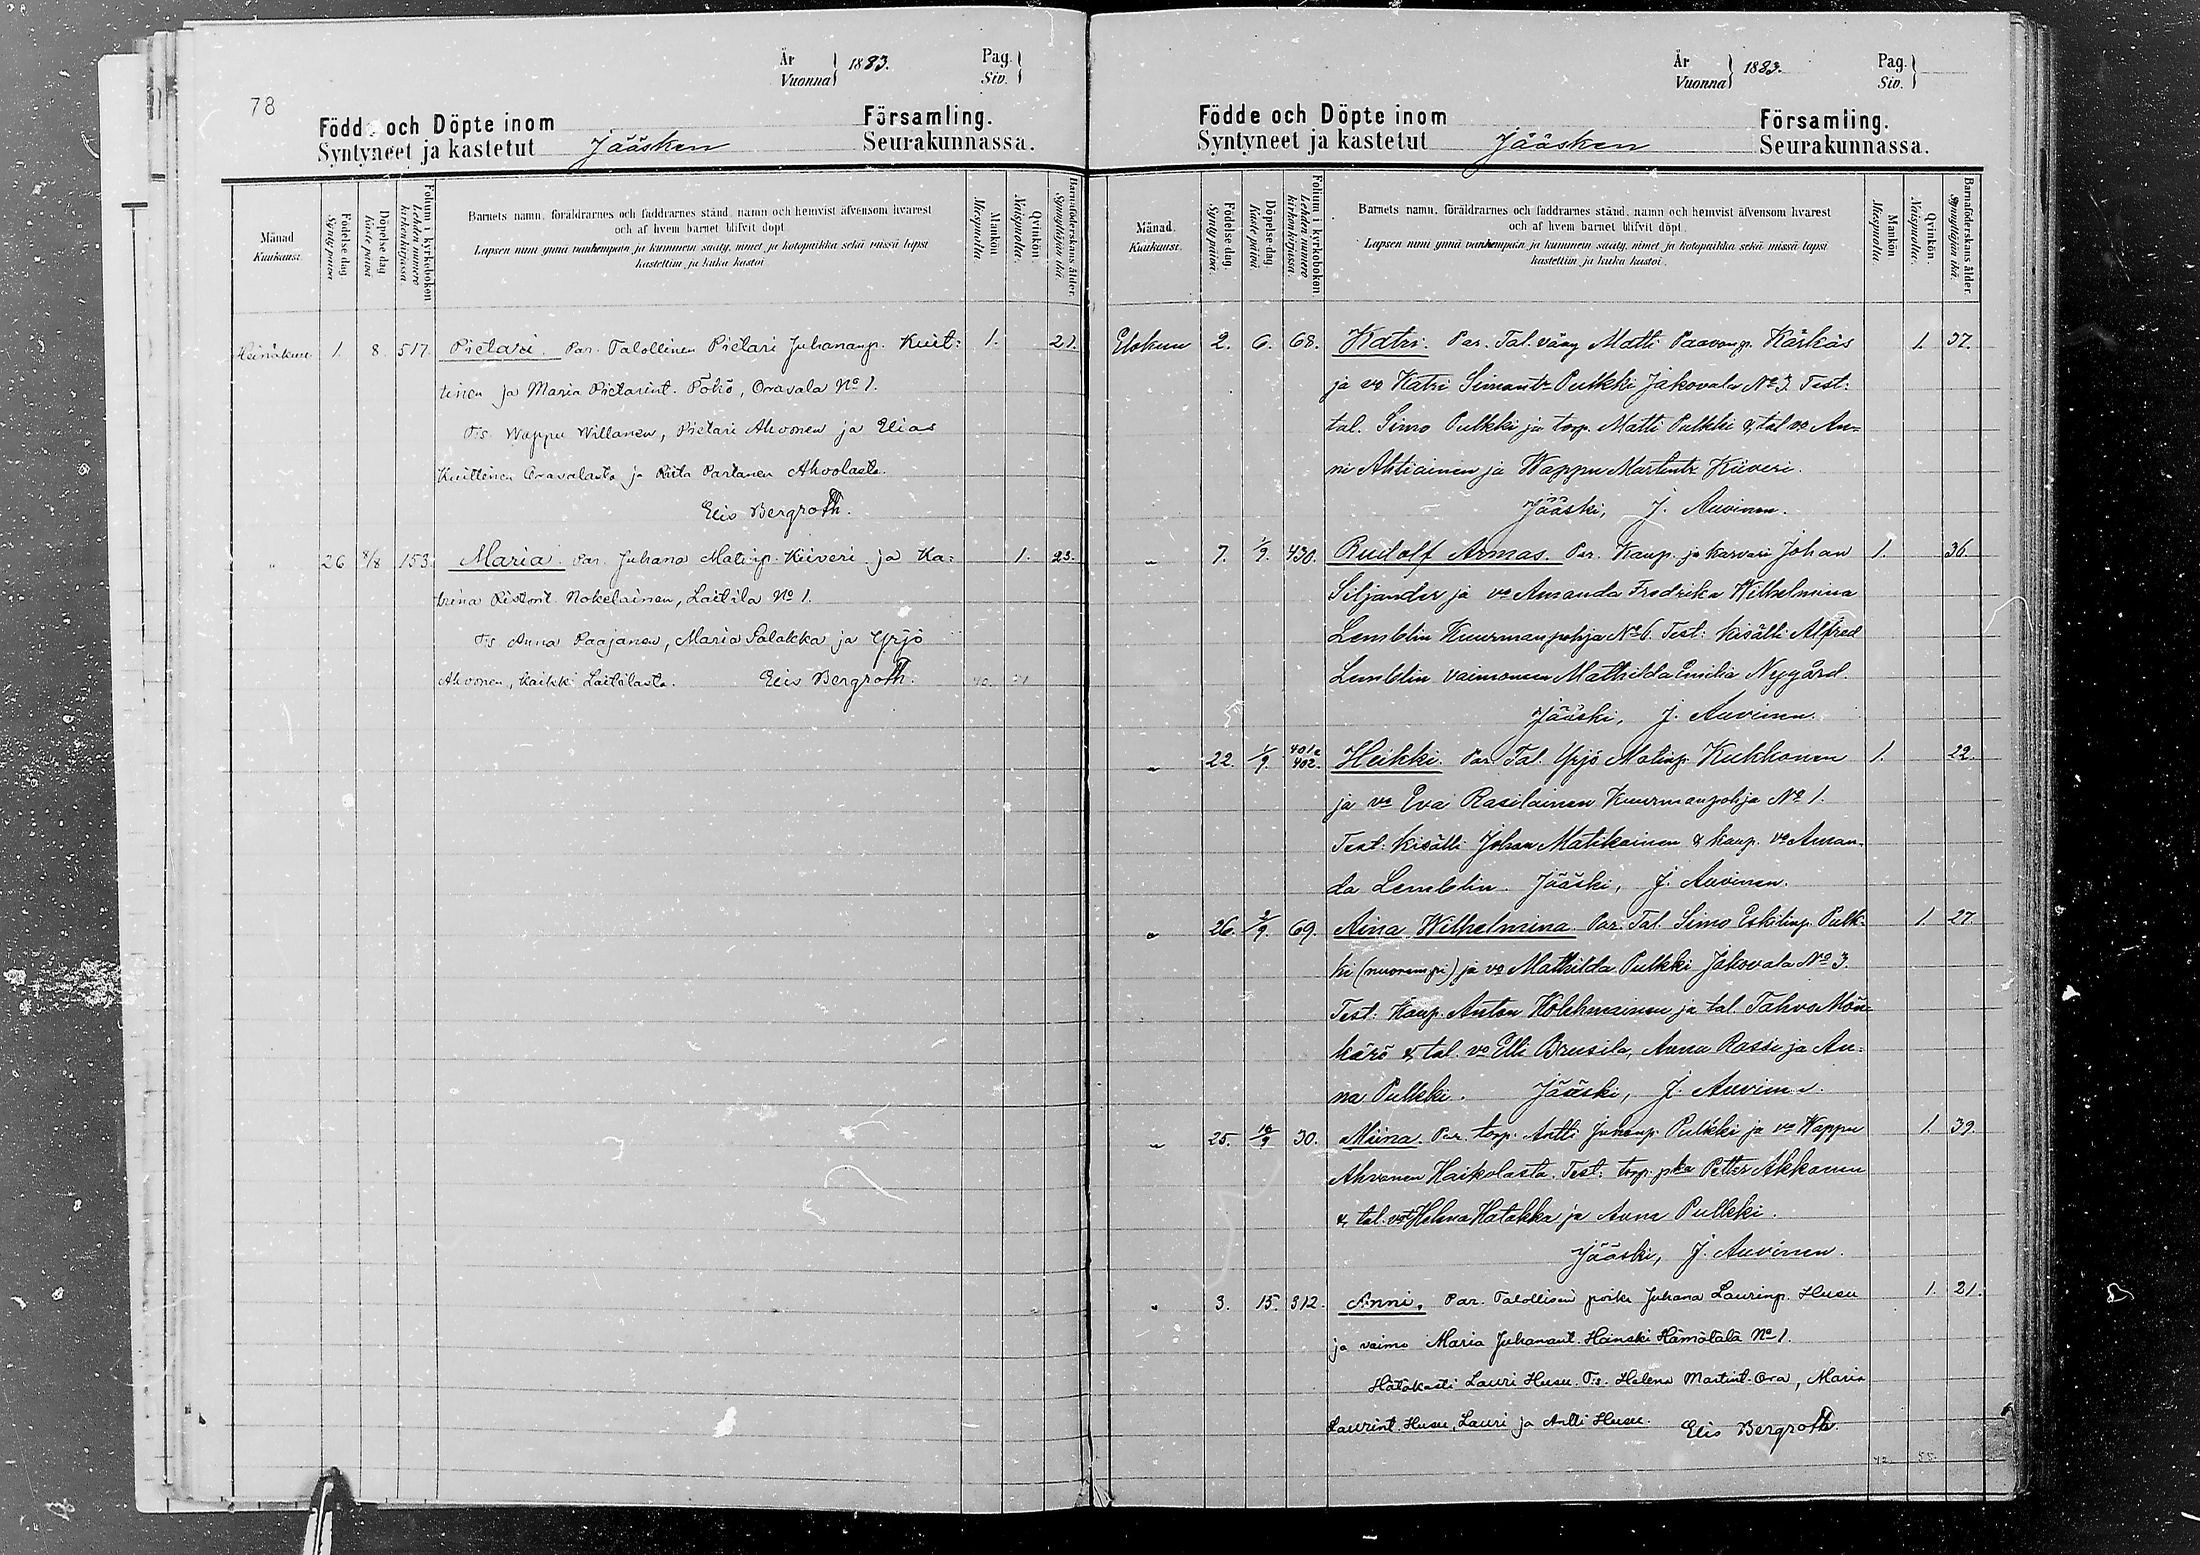 78
År
Vuonna } 1883.
Pag.
Siv.
Födde och Döpte inom
Syntyneet ja kastetut Jääsken
Församling.
Seurakunnassa.
Månad
Kuukausi.
Födelse dag.
Synty päivä.
Döpelse dag.
Kaste päivä.
Folium i kyrkoboken
Lehden numero
kirkonkirjassa.
Barnets namn, föräldrarnes och faddrarnes stånd, namn och hemvist äfvensom hvarest
och af hvem barnet blifvit döpt.
Lapsen nimi ynnä vanhempain ja kummein sääty, nimet ja kotopaikka sekä missä lapsi
kastettiin ja kuka kastoi.
Mankön
Miespuolia.
Qvinkön.
Naispuolia.
Barnaföderskans ålder.
Synnyttäjän ikä.
Heinäkuu 1. 8. 517. Pietari. Par. Talollinen Pietari Juhananp. Kuit= 1. 21.
tinen ja Maria Pietarint. Pohjo, Oravala No 1.
T:s. Wappu Willanen, Pietari Ahvonen ja Elias
Kuittinen Oravalasta ja Riita Partanen Ahvolasta.
Elis Bergroth.
„ 26 8/8 153. Maria. Par. Juhana Matinp. Kiiveri ja Ka= 1. 23.
trina Ristont. Nokelainen, Laitila No 1.
T:s Anna Paajanen, Maria Salakka ja Yrjö
Ahvonen, kaikki Laitilasta. Elis Bergroth.
År
Vuonna } 1883.
Pag.
Siv.
Födde och Döpte inom
Syntyneet ja kastetut Jääsken
Församling.
Seurakunnassa.
Månad.
Kuukausi.
Födelse dag.
Synty päivä.
Döpelse dag.
Kaste päivä
Folium i kyrkoboken
Lehden numero
kirkonkirjassa.
Barnets namn, föräldrarnes och faddrarnes stånd, namn och hemvist äfvensom hvarest
och af hvem barnet blifvit döpt.
Lapsen nimi ynnä vanhempain ja kummein sääty, nimet ja kotopaikka sekä missä lapsi
kastettiin ja kuka kastoi.
Mankön
Miespuolia.
Qvinkön.
Naispuolia.
Barnaföderskans ålder.
Synnyttäjän ikä.
Elokuu 2. 6. 68. Katri. Par. Tal. vävy Matti Paavonp. Kärkäs 1. 37.
ja vo Katri Simontr Pulkki Jakovala No 3. Test:
tal. Simo Pulkki ja torp. Matti Pulkki & tal vo An=
ni Ahtiainen ja Wappu Martintr Kiiveri.
Jääski, J. Auvinen.
„ 7. 1/9. 430. Rudolf Armas. Par. Kaup. ja karvari Johan 1. 36.
Siljander ja vo Amanda Fredrika Wilhelmina
Lemblin Kuurmanpohja No 6. Test: kisälli Alfred
Lemblin vaimoneen Mathilda Emilia Nygård.
Jääski, J. Auvinen.
„ 22. 1/9. 401 & 402. Heikki. Par. Tal. Yrjö Matinp. Kukkonen 1. 22.
ja vo Eva Rasilainen Kuurmanpohja No 1.
Test: kisälli Johan Matikainen & kaup. vo Aman-
da Lemblin. Jääski, J. Auvinen.
„ 26. 2/9. 69. Aina Wilhelmina. Par. Tal. Simo Eskilinp. Pulk- 1. 27.
ki (nuorempi) ja vo Mathilda Pulkki Jakovala No 3.
Test: Kaup. Anton Kolehmainen ja tal. Tahvo Mön-
kärö & tal. vo Elli Brusila, Anna Rassi ja An=
na Pulkki. Jääski, J. Auvinen.
„ 25. 16/9 30. Miina. Par. torp. Antti Juhanp. Pulkki ja vo Wappu 1. 39.
Ahvonen Kaikolasta. Test: torp. pka Petter Akkanen
& tal. vot Helena Hatakka ja Anna Pulkki.
Jääski, J. Auvinen.
„ 3. 15. 312. Anni. Par. Talollisen poika Juhana Laurinp. Husu 1. 21.
ja vaimo Maria Juhanant. Hanski Hämölälä No 1.
Hätäkasti Lauri Husu. T:s. Helena Martint. Ora, Maria
Laurint. Husu, Lauri ja Antti Husu. Elis Bergroth.